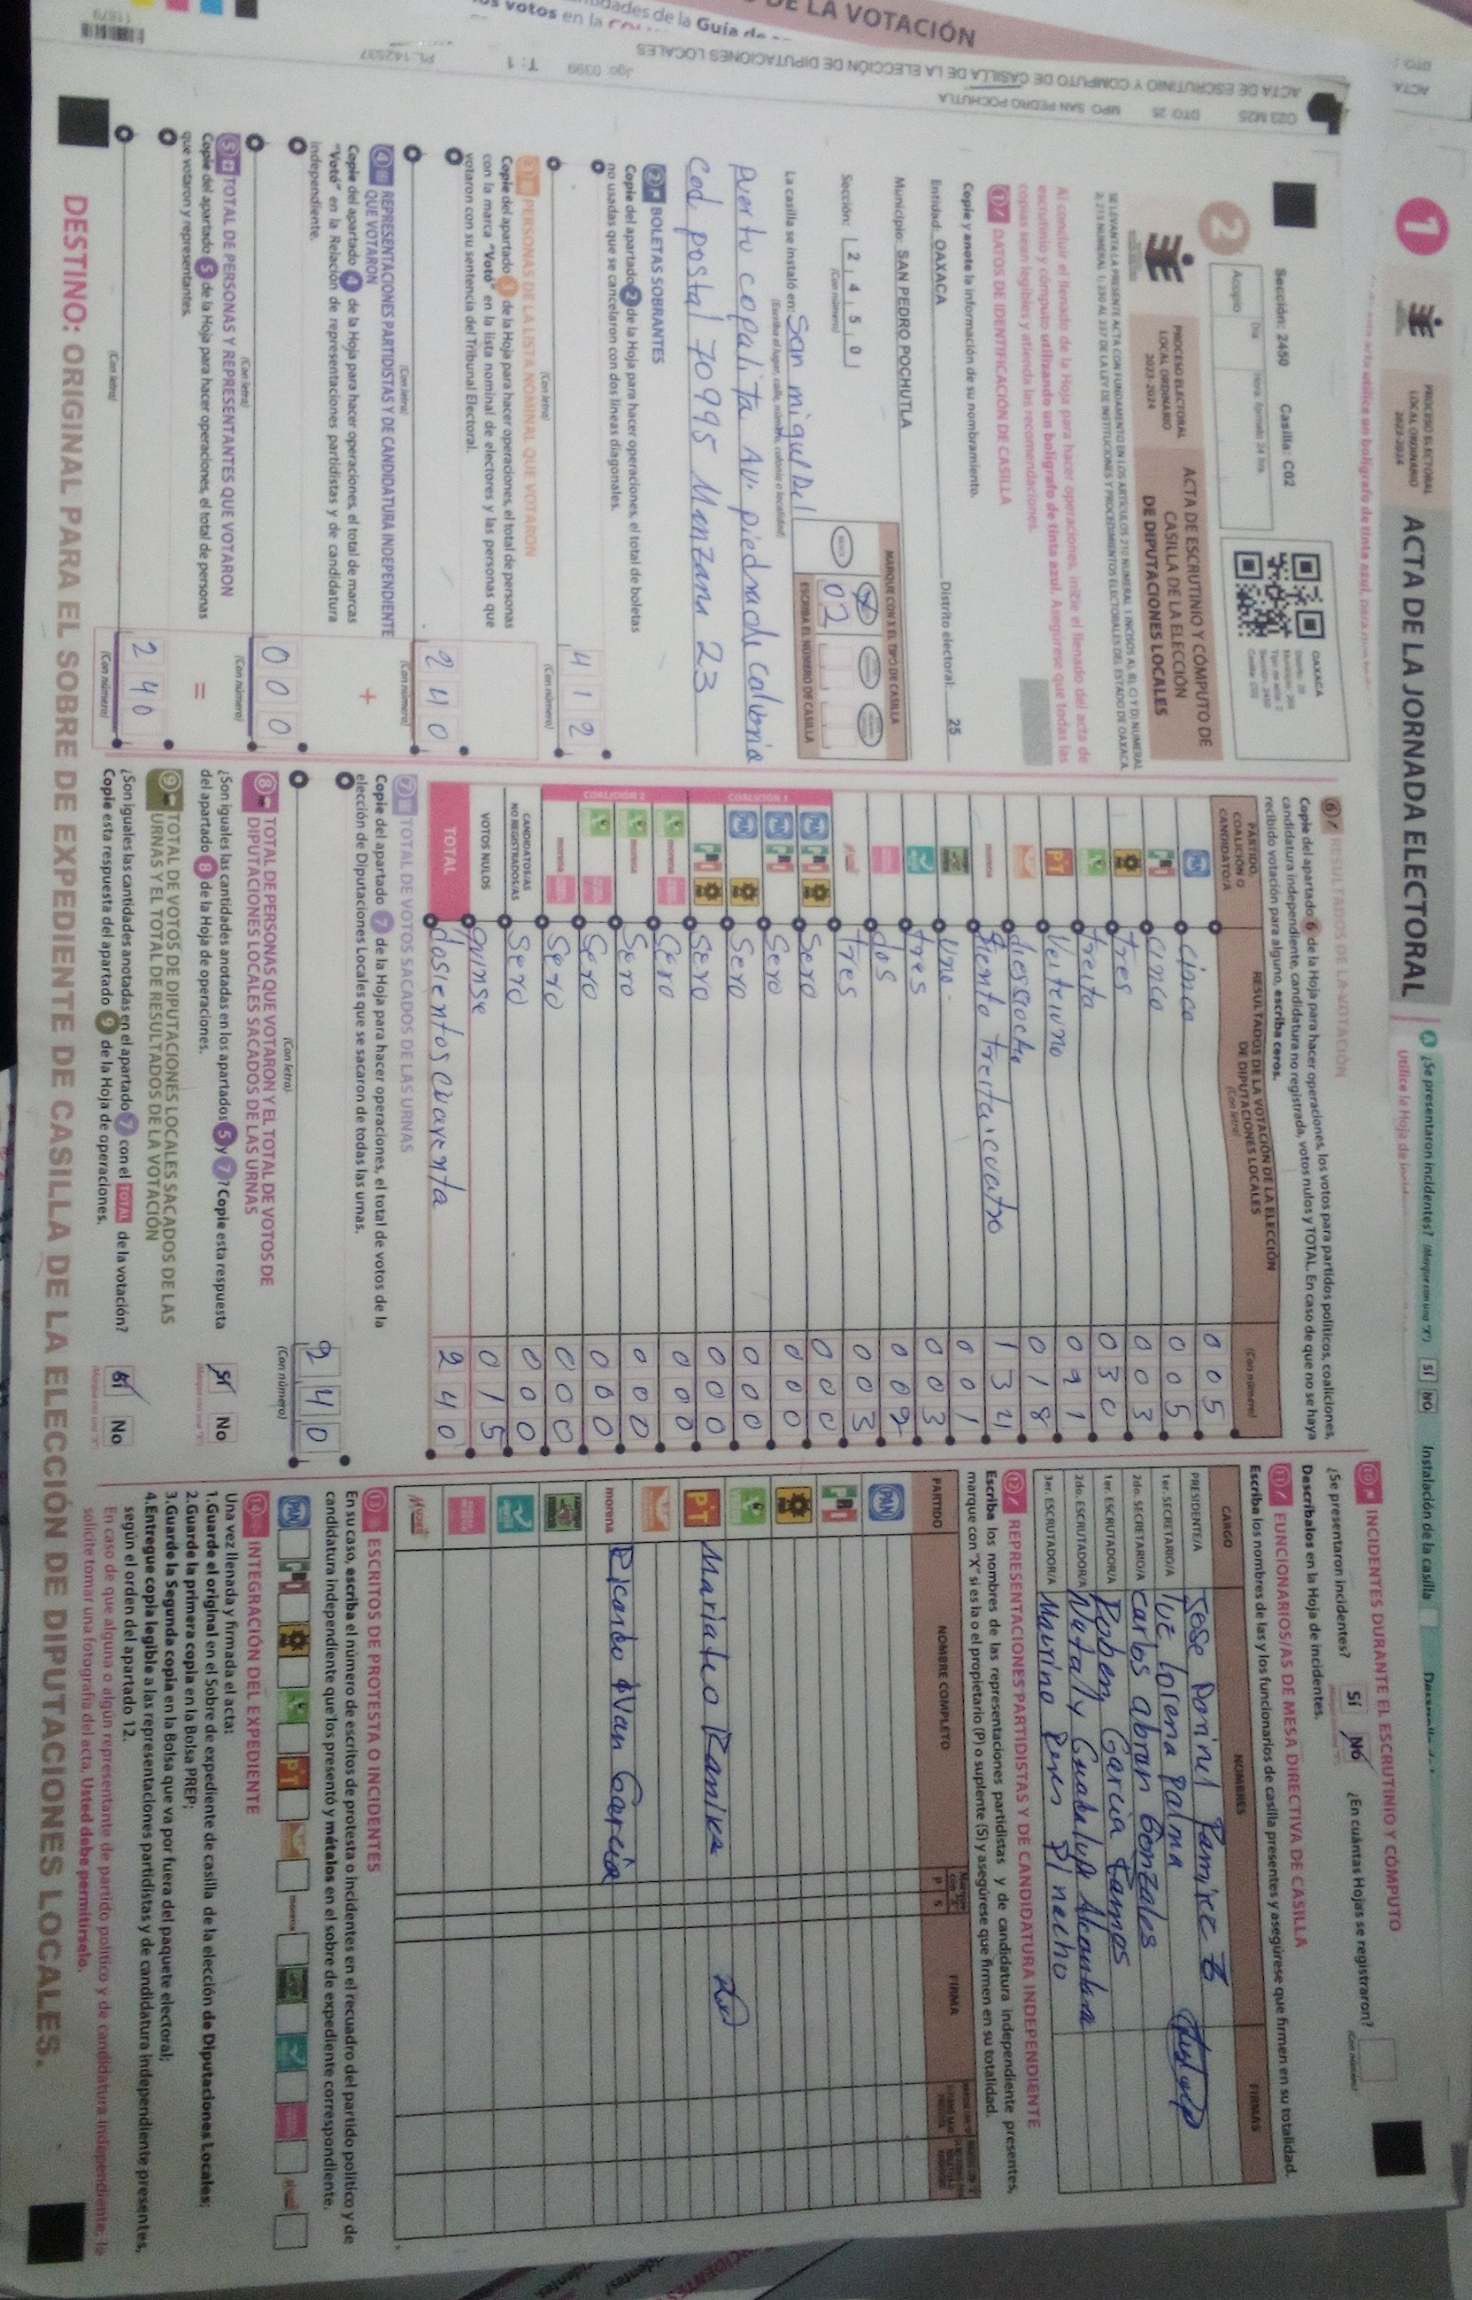 DE LA VOTACIÓN
1
PROCESO ELECTORAL
LOCAL ORDINARIO
2023-2024
ACTA DE LA JORNADA ELECTORAL
¿Se presentaron incidentes?
SÍ NO
Instalación de la casilla
ACTA DE ESCRUTINIO Y CÓMPUTO DE CASILLA DE LA ELECCIÓN DE DIPUTACIONES LOCALES
DTO: 25 MPO: SAN PEDRO POCHUTLA
Sección: 2450 Casilla: C02
2
Acuspio
OAXACA
PROCESO ELECTORAL
LOCAL ORDINARIO
2023-2024
ACTA DE ESCRUTINIO Y CÓMPUTO DE
CASILLA DE LA ELECCIÓN
DE DIPUTACIONES LOCALES
Al concluir el llenado de la Hoja para hacer operaciones, inicie el llenado del acta de
escrutinio y cómputo utilizando un bolígrafo de tinta azul. Asegúrese que todas las
copias sean legibles y atienda las recomendaciones.
1 DATOS DE IDENTIFICACIÓN DE CASILLA
Copie y anote la información de su nombramiento.
Entidad: OAXACA Distrito electoral: 25
Municipio: SAN PEDRO POCHUTLA
Sección: 2 4 5 0
(Con número)
MARQUE CON X EL TIPO DE CASILLA
ESCRIBA EL NÚMERO DE CASILLA
02
La casilla se instaló en: San miguel Del
(Escriba el lugar, calle, número, colonia o localidad)
puerto copalita AV. piedrache colonia
Cod. postal 70995 Manzana 23
2 BOLETAS SOBRANTES
Copie del apartado 2 de la Hoja para hacer operaciones, el total de boletas
no usadas que se cancelaron con dos líneas diagonales.
4 1 2
(Con letra) (Con número)
3 PERSONAS DE LA LISTA NOMINAL QUE VOTARON
Copie del apartado 3 de la Hoja para hacer operaciones, el total de personas
con la marca "Votó" en la lista nominal de electores y las personas que
votaron con su sentencia del Tribunal Electoral.
2 4 0
(Con letra) (Con número)
4 REPRESENTACIONES PARTIDISTAS Y DE CANDIDATURA INDEPENDIENTE
QUE VOTARON
+
Copie del apartado 4 de la Hoja para hacer operaciones, el total de marcas
"Votó" en la Relación de representaciones partidistas y de candidatura
independiente.
0 0 0
(Con letra) (Con número)
5 TOTAL DE PERSONAS Y REPRESENTANTES QUE VOTARON
=
Copie del apartado 5 de la Hoja para hacer operaciones, el total de personas
que votaron y representantes.
2 4 0
(Con letra) (Con número)
6 RESULTADOS DE LA VOTACIÓN
Copie del apartado 6 de la Hoja para hacer operaciones, los votos para partidos políticos, coaliciones,
candidatura independiente, candidatura no registrada, votos nulos y TOTAL. En caso de que no se haya
recibido votación para alguno, escriba ceros.
PARTIDO, COALICIÓN O CANDIDATO/A
RESULTADOS DE LA VOTACIÓN DE LA ELECCIÓN
DE DIPUTACIONES LOCALES
(Con letra) (Con número)
PAN cinco 0 0 5
PRI cinco 0 0 5
PRD tres 0 0 3
VERDE treita 0 3 0
PT Veiteiuno 0 2 1
diesciocho 0 1 8
morena siento treitaicuatro 1 3 4
uno 0 0 1
tres 0 0 3
dos 0 0 2
tres 0 0 3
COALICIÓN 1
PAN PRI PRD Sero 0 0 0
PAN PRI Sero 0 0 0
PAN PRD Sero 0 0 0
PRI PRD Sero 0 0 0
COALICIÓN 2
VERDE morena Cero 0 0 0
VERDE morena Sero 0 0 0
VERDE Cero 0 0 0
morena Sero 0 0 0
CANDIDATOS/AS NO REGISTRADOS/AS Sero 0 0 0
VOTOS NULOS quinse 0 1 5
TOTAL dosientos cuarenta 2 4 0
7 TOTAL DE VOTOS SACADOS DE LAS URNAS
Copie del apartado 7 de la Hoja para hacer operaciones, el total de votos de la
elección de Diputaciones Locales que se sacaron de todas las urnas.
2 4 0
(Con letra) (Con número)
8 TOTAL DE PERSONAS QUE VOTARON Y EL TOTAL DE VOTOS DE
DIPUTACIONES LOCALES SACADOS DE LAS URNAS
¿Son iguales las cantidades anotadas en los apartados 5 y 7? Copie esta respuesta
del apartado 8 de la Hoja de operaciones.
SÍ No
9 TOTAL DE VOTOS DE DIPUTACIONES LOCALES SACADOS DE LAS
URNAS Y EL TOTAL DE RESULTADOS DE LA VOTACIÓN
¿Son iguales las cantidades anotadas en el apartado 7 con el TOTAL de la votación?
Copie esta respuesta del apartado 9 de la Hoja de operaciones.
SÍ No
10 INCIDENTES DURANTE EL ESCRUTINIO Y CÓMPUTO
¿Se presentaron incidentes? Sí No ¿En cuántas Hojas se registraron?
Descríbalos en la Hoja de incidentes.
11 FUNCIONARIOS/AS DE MESA DIRECTIVA DE CASILLA
Escriba los nombres de las y los funcionarios de casilla presentes y asegúrese que firmen en su totalidad.
CARGO NOMBRES FIRMAS
PRESIDENTE/A Jose Dorinel Ramirez
1er. SECRETARIO/A luz lorena palma
2do. SECRETARIO/A carlos abran Gonzales
1er. ESCRUTADOR/A Ruben Garcia Ramos
2do. ESCRUTADOR/A Nataly Guadalupe Alcantara
3er. ESCRUTADOR/A Maurino Peres Pinacho
12 REPRESENTACIONES PARTIDISTAS Y DE CANDIDATURA INDEPENDIENTE
Escriba los nombres de las representaciones partidistas y de candidatura independiente presentes,
marque con "X" si es la o el propietario (P) o suplente (S) y asegúrese que firmen en su totalidad.
PARTIDO NOMBRE COMPLETO P S FIRMA
PAN
PRI
PRD
VERDE
PT Maria teo Ramires
morena Ricardo Ivan Garcia
13 ESCRITOS DE PROTESTA O INCIDENTES
En su caso, escriba el número de escritos de protesta o incidentes en el recuadro del partido político y de
candidatura independiente que los presentó y métalos en el sobre de expediente correspondiente.
14 INTEGRACIÓN DEL EXPEDIENTE
Una vez llenada y firmada el acta:
1.Guarde el original en el Sobre de expediente de casilla de la elección de Diputaciones Locales;
2.Guarde la primera copia en la Bolsa PREP;
3.Guarde la Segunda copia en la Bolsa que va por fuera del paquete electoral;
4.Entregue copia legible a las representaciones partidistas y de candidatura independiente presentes,
según el orden del apartado 12.
En caso de que alguna o algún representante de partido político y de candidatura independiente, le
solicite tomar una fotografía del acta, Usted debe permitírselo.
DESTINO: ORIGINAL PARA EL SOBRE DE EXPEDIENTE DE CASILLA DE LA ELECCIÓN DE DIPUTACIONES LOCALES.